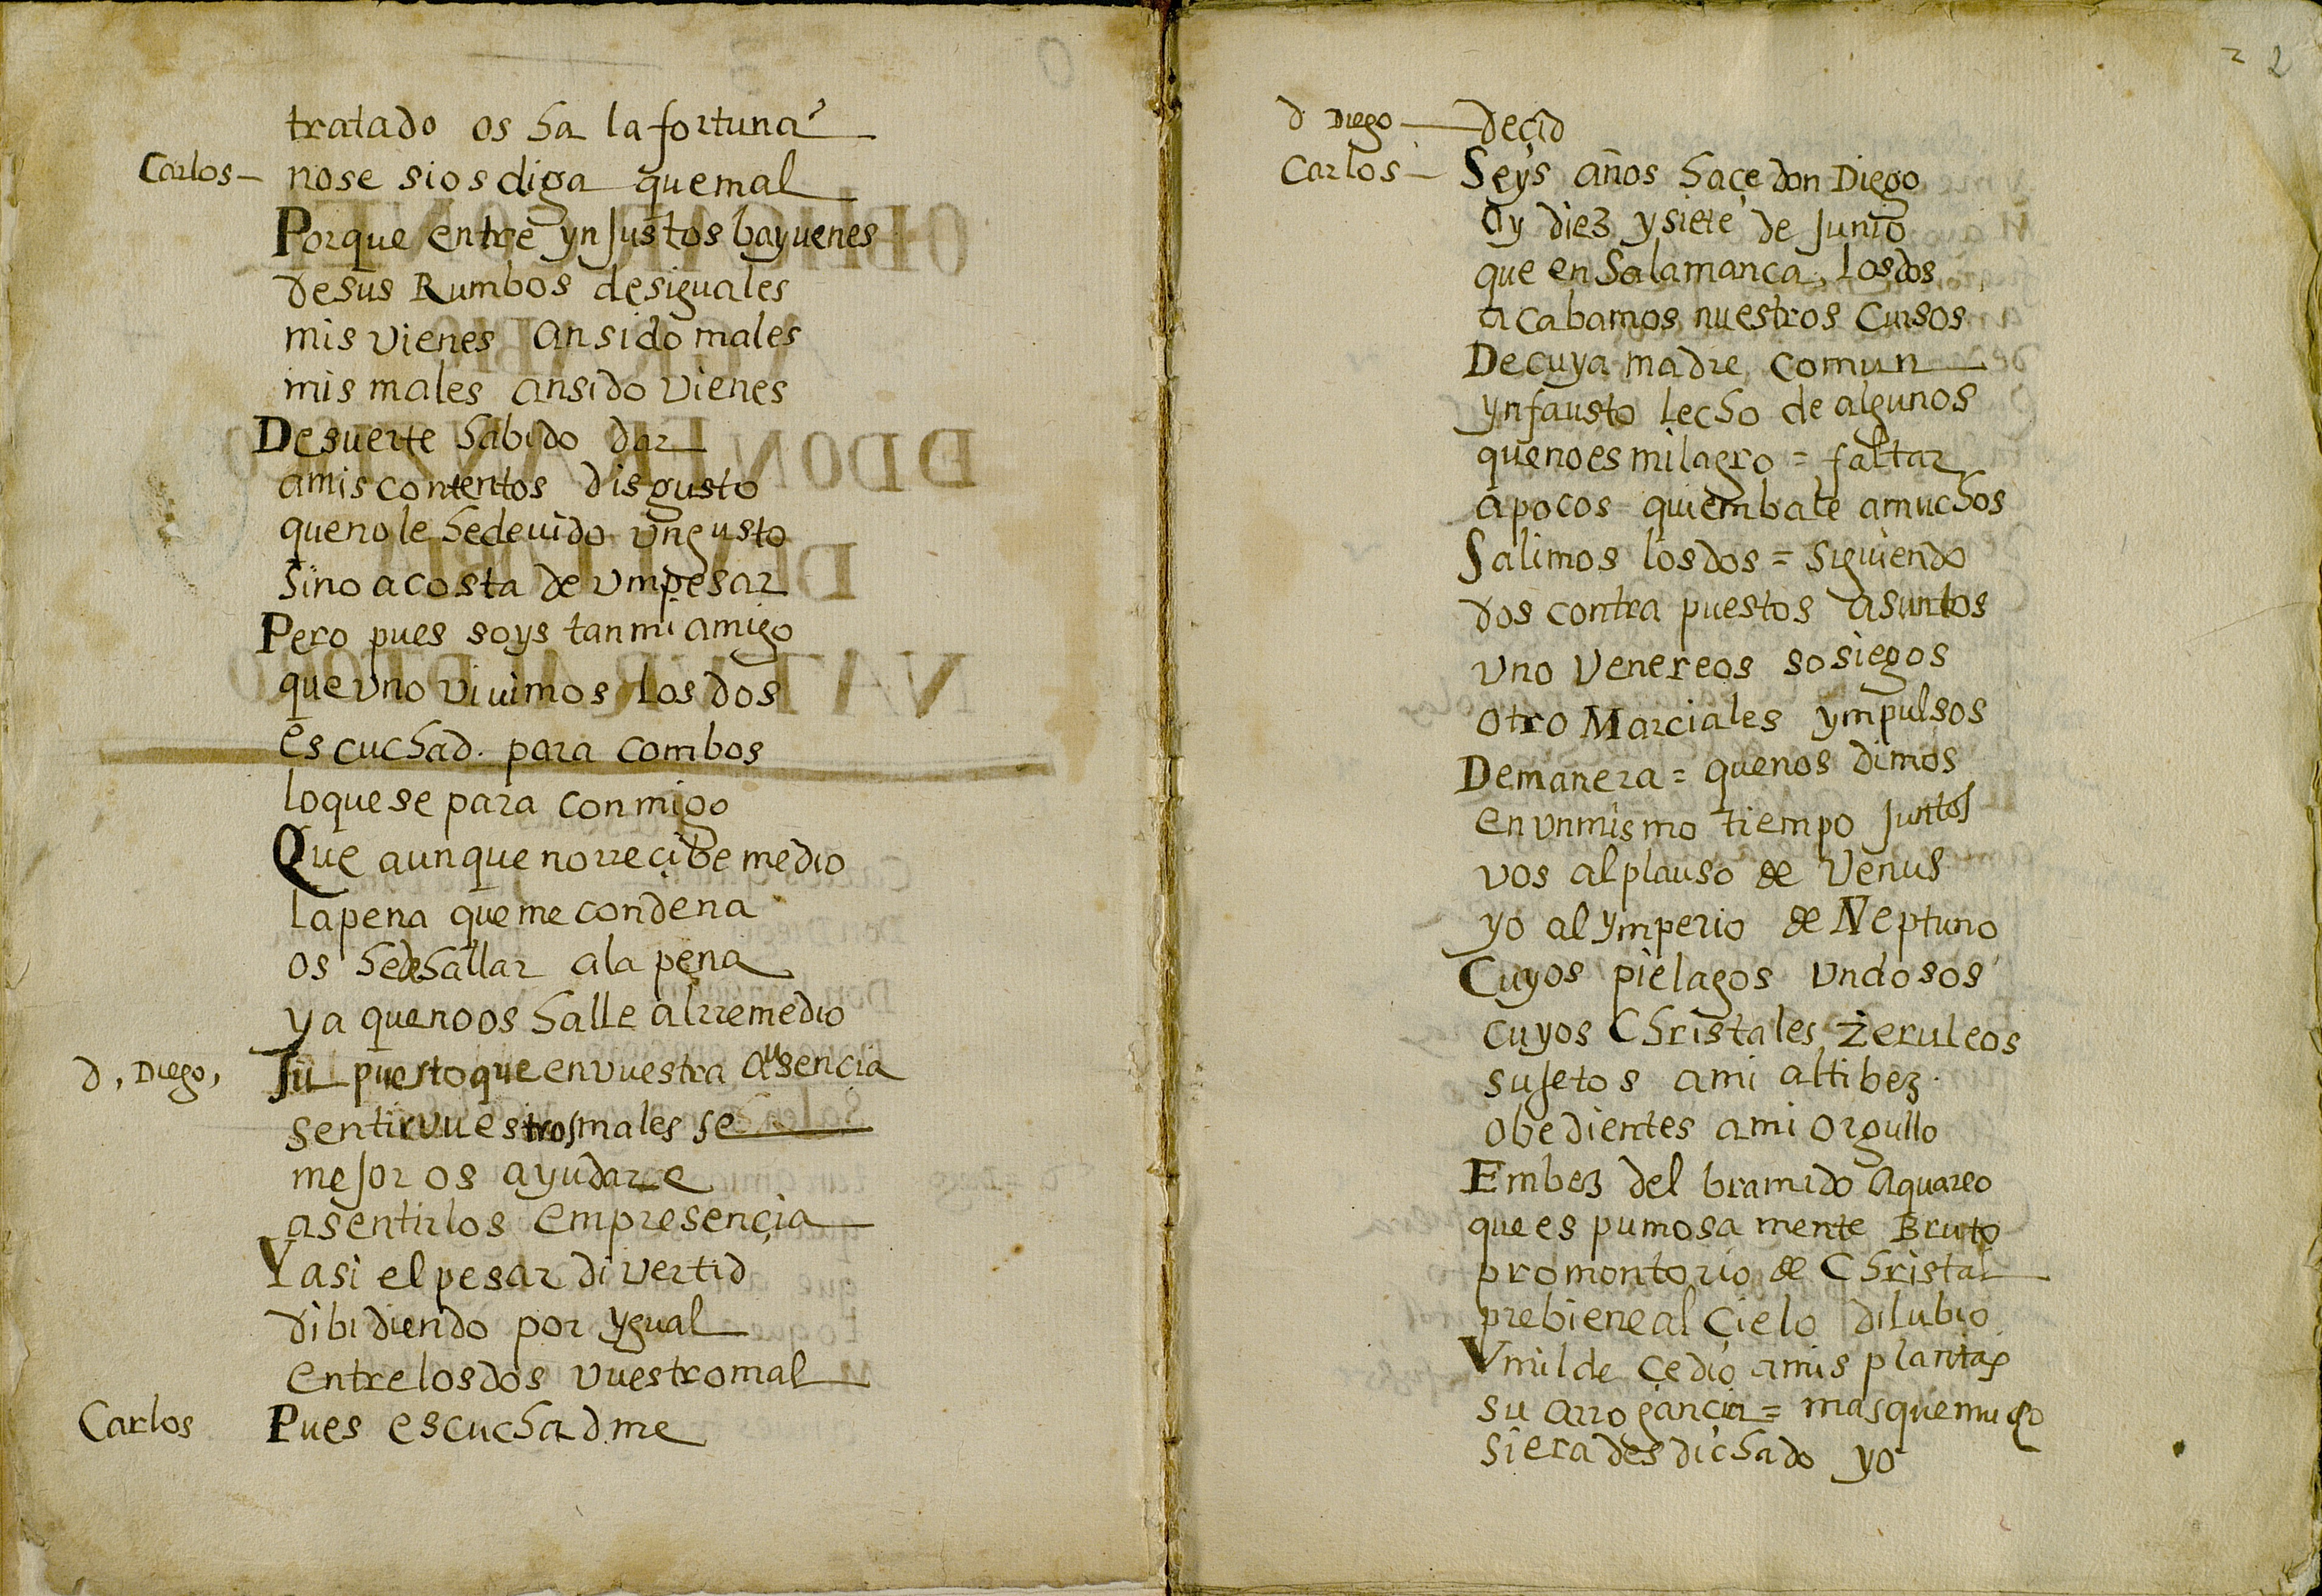 tratado os ha la fortuna
Carlos – nose sios diga quemal
Porque entre ynJustos bayuenes
desus Rumbos desiguales
mis vienes an sido males
mis males ansido vienes
Desuerte habido dar
amis contentos disgusto
quenole hedeuido ungusto
sino acosta de vmpesar
Pero pues soys tanmi amigo
que vno viuimos los dos
escuchad. para combos
loquese para conmigo
Que aunque norrecibe medio
lapena queme condena
os hedehallar ala pena
ya quenoos halle alrremedio
d, Diego, Su puestoque envuestra Ausencia
sentirvuestrosmales se
meJor os ayudare
asentirlos empresençia
Yasi elpesar divertid
dibidiendo por ygual
entrelosdos vuestromal
Carlos Pues escuchadme
2 2
d Diego — deçid
Carlos – Seys años haçe don Diego
Oy diez ysiete de Junio
que en Salamanca, los dos
acabamos nuestros Cursos
Decuya madre comun
ynfausto lecho de algunos
quenoes milagro = faltar
apocos quiembale amuchos
Salimos losdos = siguiendo
dos contra puestos asuntos
vno Venereos sosiegos
otro Marciales ympulsos
Demanera = quenos dimos
en vnmismo tiempo Juntos
vos alplauso de Venus
yo al ymperio de Neptuno
Cuyos pielagos vndosos
cuyos Christales zeruleos
suJetos ami altibez
obedientes ami orgullo
Embez del bramido Aquareo
quees pumosa mente Bruto
promontorio de Christal
prebieneal Çielo dilubio
Vmilde çedio amis plantas
su arrogancia = masquemucho
siera desdichado yo